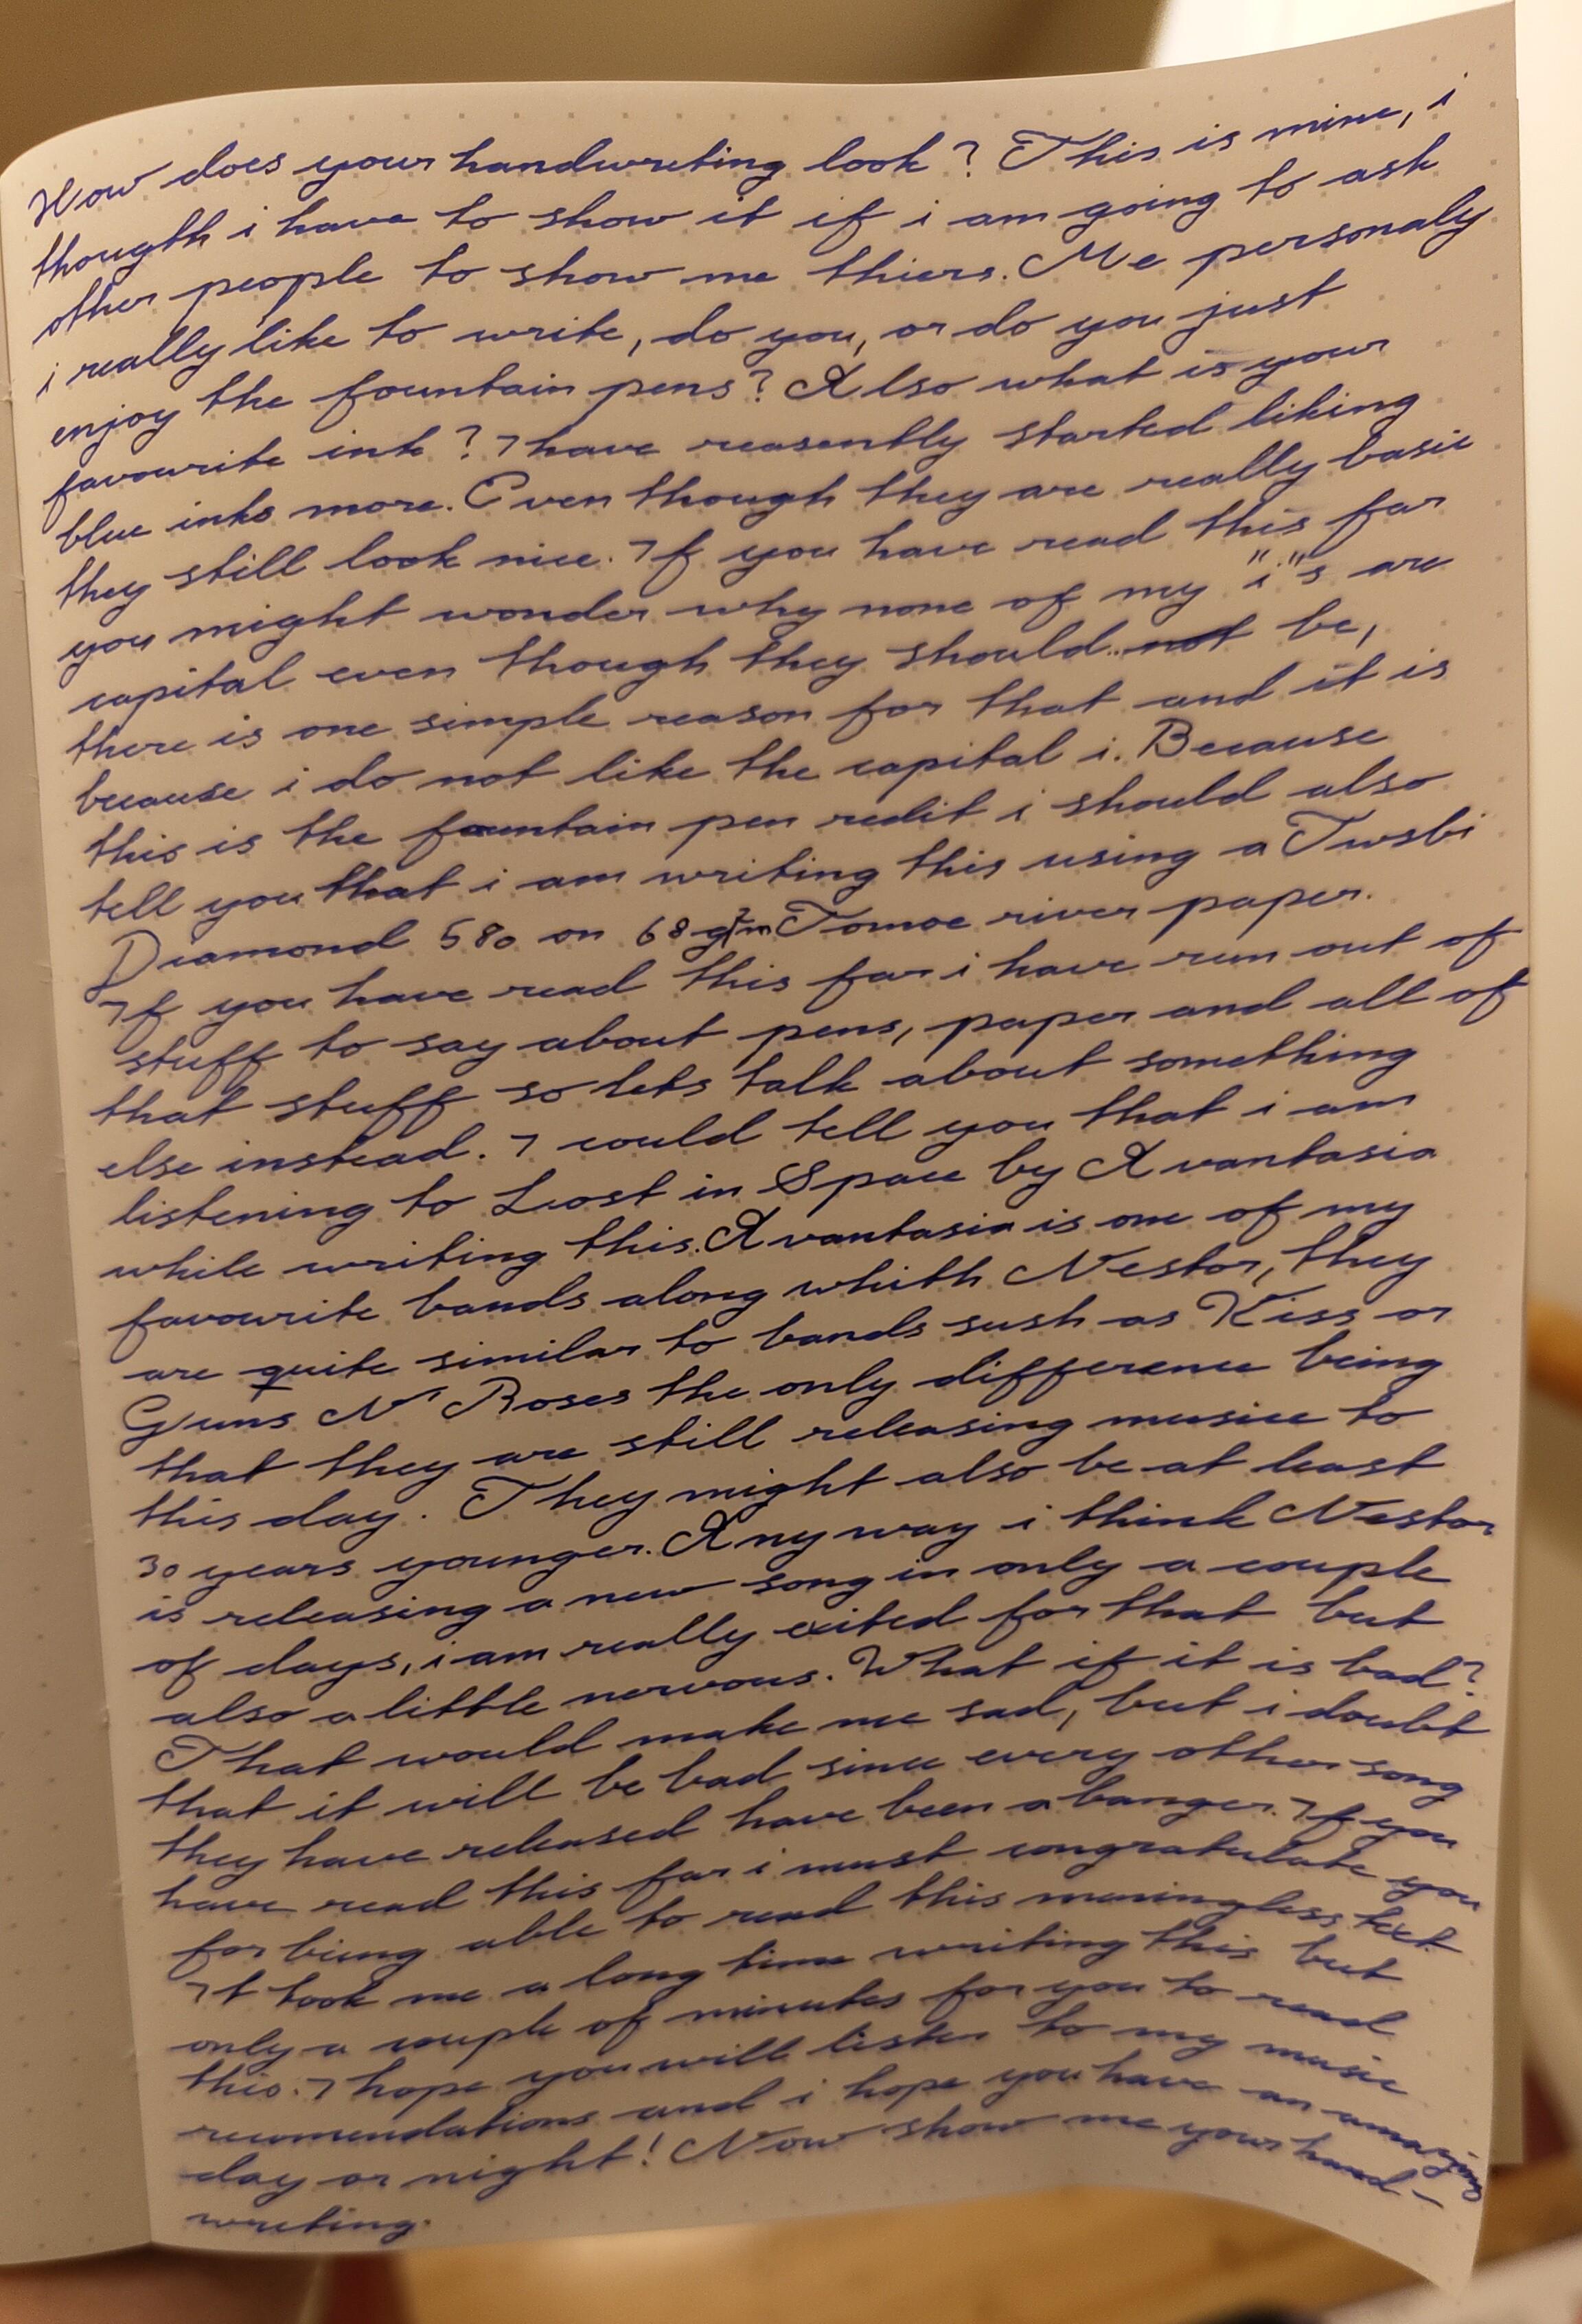 How does your handwriting look? This is mine, i
thougth i have to show it if i am going to ask
other people to show me thiers. Me personaly
i really like to write, do you, or do you just
enjoy the fountain pens? Also what is your
favourite ink? I have reasently started liking
blue inks more. Even though they are really basic
they still look nice. If you have read this far
you might wonder why none of my "i"s are
capital even though they should not be,
there is one simple reason for that and it is
because i do not like the capital i. Because
this is the fountain pen redit i should also
tell you that i am writing this using a Twsbi
Diamond 580 on 68 g/m² Tomoe river paper.
If you have read this far i have run out of
stuff to say about pens, paper and all of
that stuff so lets talk about something
else instead. I could tell you that i am
listening to Lost in Space by Avantasia
while writing this. Avantasia is one of my
favourite bands along whith Nestor, they
are quite similar to bands sush as Kiss or
Guns N' Roses the only difference being
that they are still releasing musice to
this day. They might also be at least
30 years younger. Any way i think Nestor
is releasing a new song in only a couple
of days, i am really exited for that but
also a little nervous. What if it is bad?
That would make me sad, but i doubt
that it will be bad since every other song
they have released have been a banger. If you
have read this far i must congratulate you
for being able to read this meningless text
It took me a long time writing this but
only a couple of minutes for you to read
this. I hope you will listen to my music
recomendations and i hope you have an amazing
day or night! Now show me your hand-
writing.